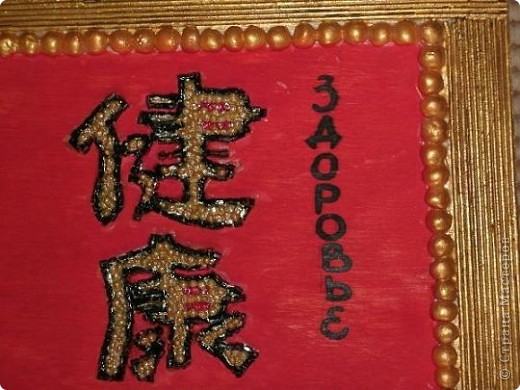 健康
ЗДОРОВЬЕ
© Страна Мастеров